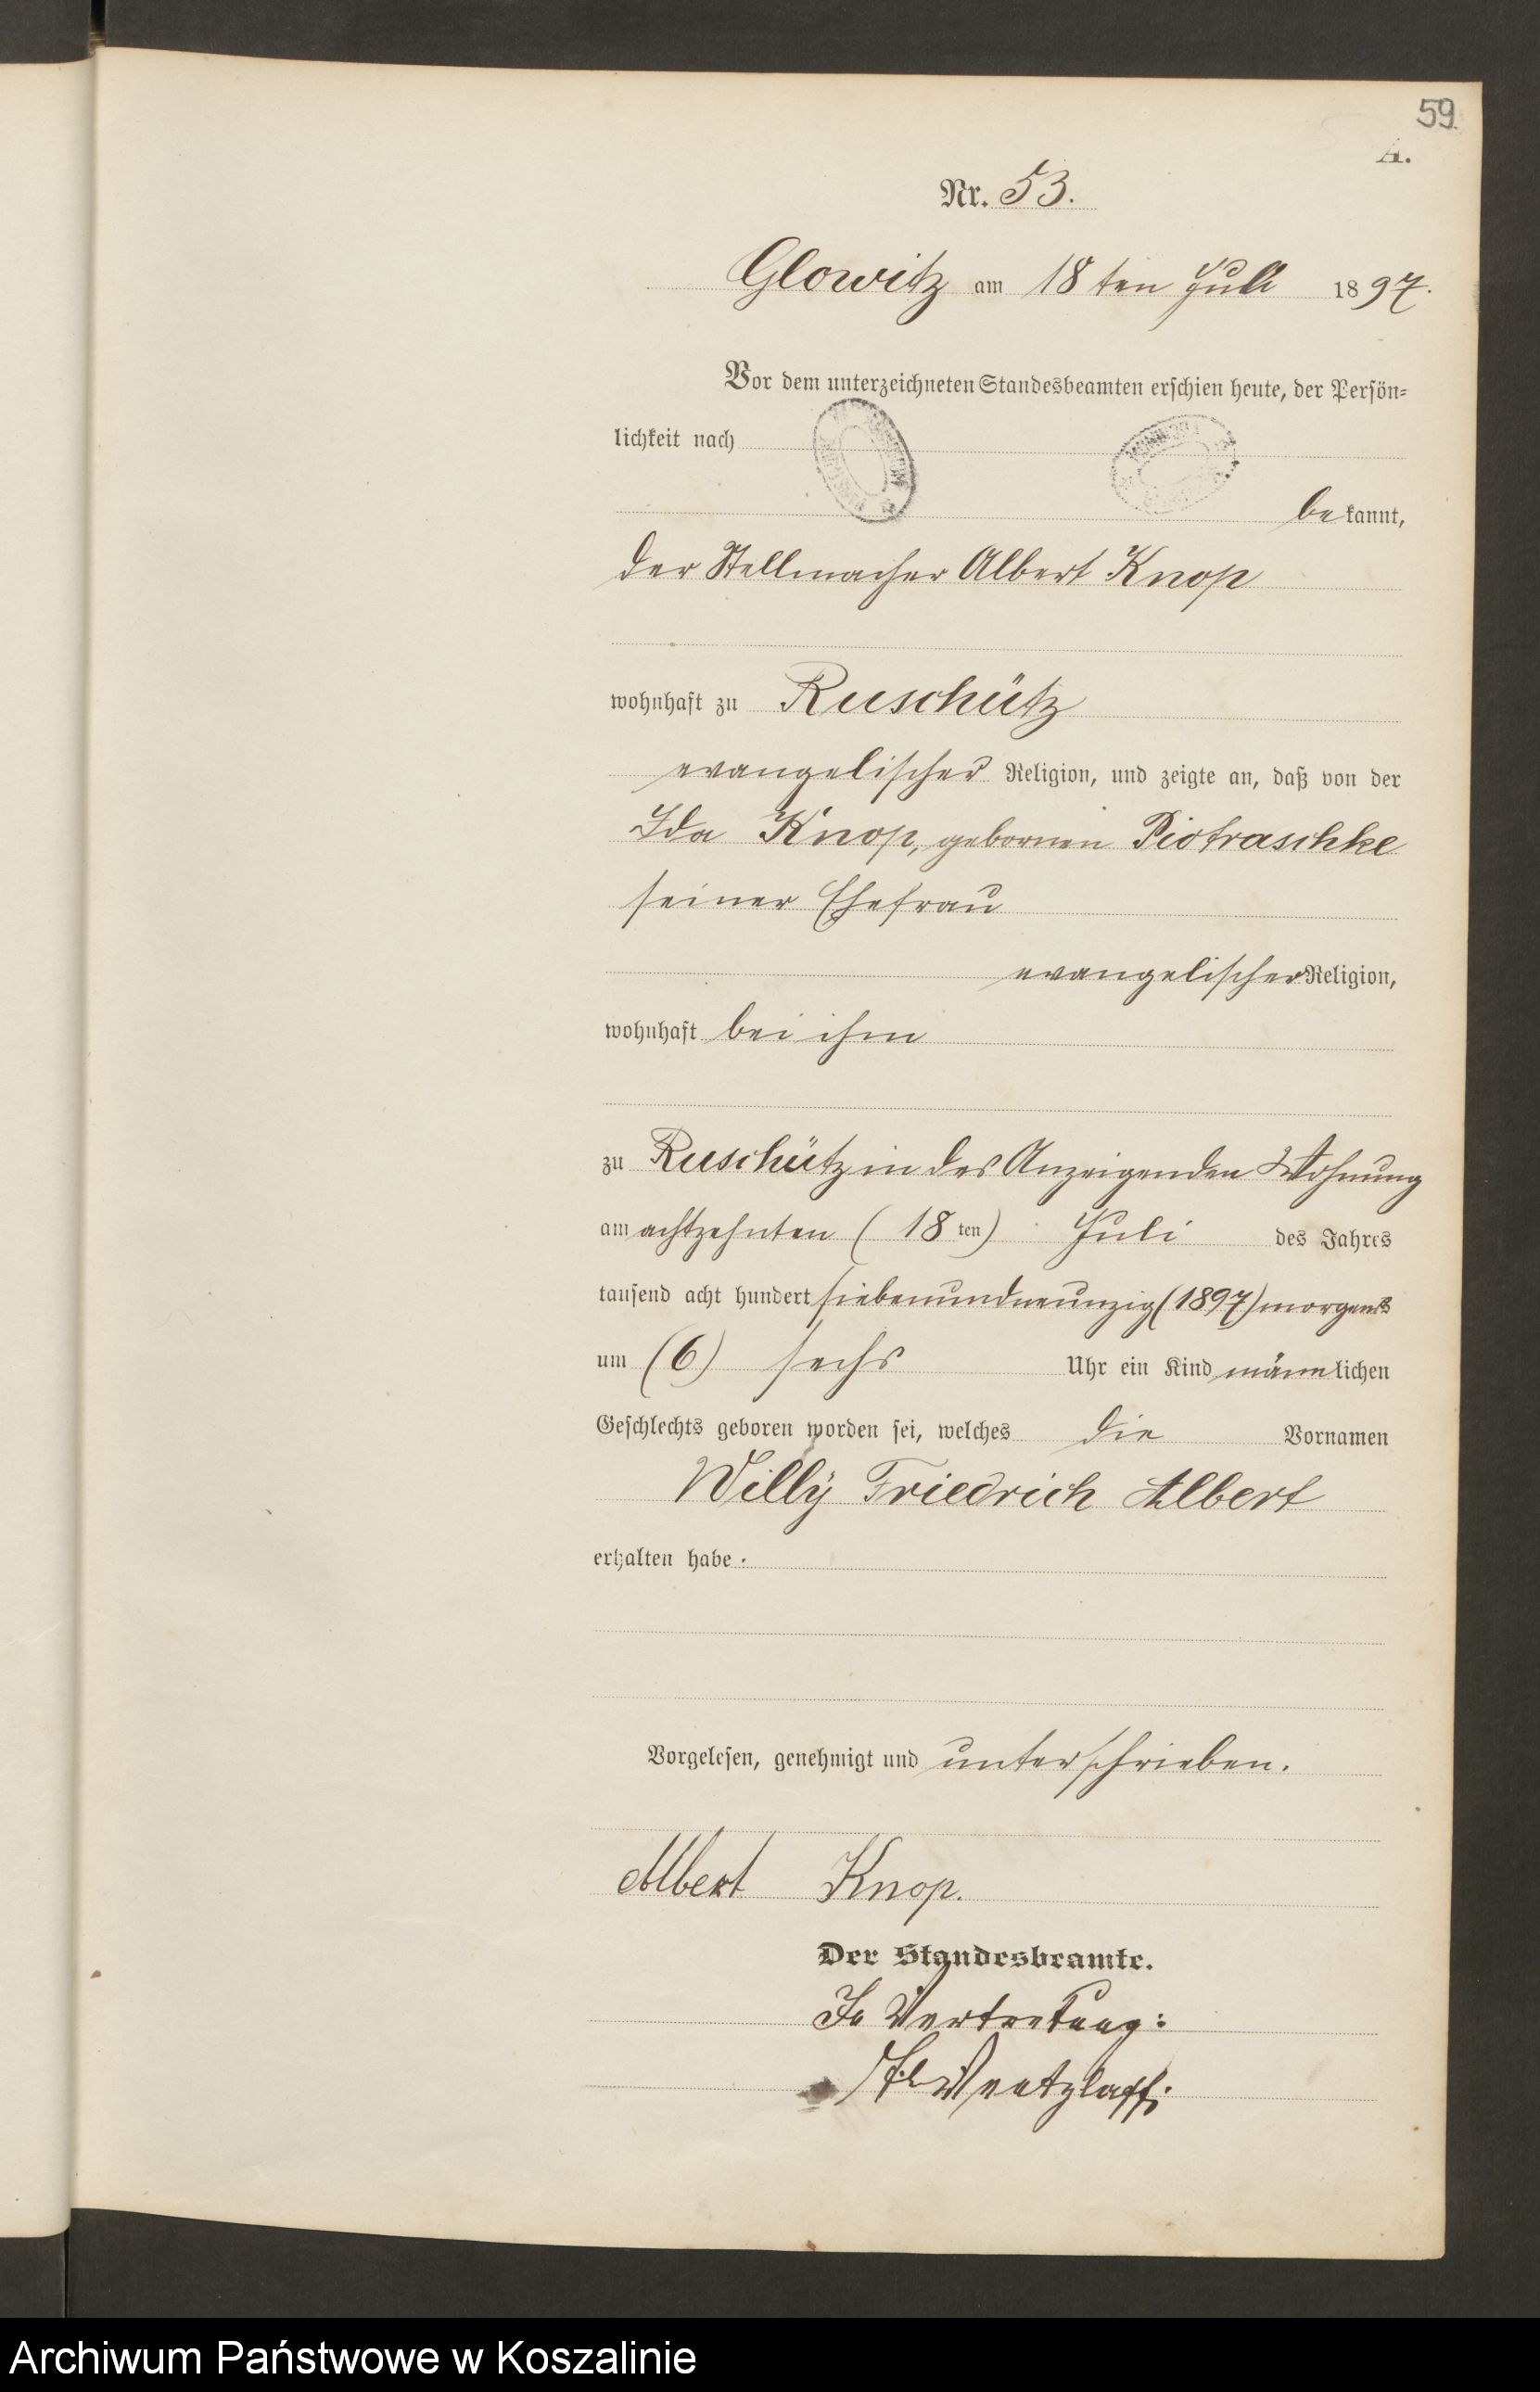 59.
A.
Nr. 53.
Glowitz am 18 ten Juli 1897.
Vor dem unterzeichneten Standesbeamten erschien heute, der Persön=
lichkeit nach
bekannt,
der Stellmacher Albert Knop
wohnhaft zu Ruschütz
evangelischer Religion, und zeigte an, daß von der
Ida Knop, gebornen Piotraschke
seiner Ehefrau
evangelischer Religion,
wohnhaft bei ihm
zu Ruschütz in des Anzeigenden Wohnung
am achtzehnten (18 ten) Juli des Jahres
tausend acht hundert siebenundneunzig (1897) morgens
um (6) sechs Uhr ein Kind männlichen
Geschlechts geboren worden sei, welches die Vornamen
Willÿ Friedrich Albert
erhalten habe.
Vorgelesen, genehmigt und unterschrieben.
Albert Knop.
Der Standesbeamte.
In Vertretung:
Wentzlaff.
Archiwum Państwowe w Koszalinie